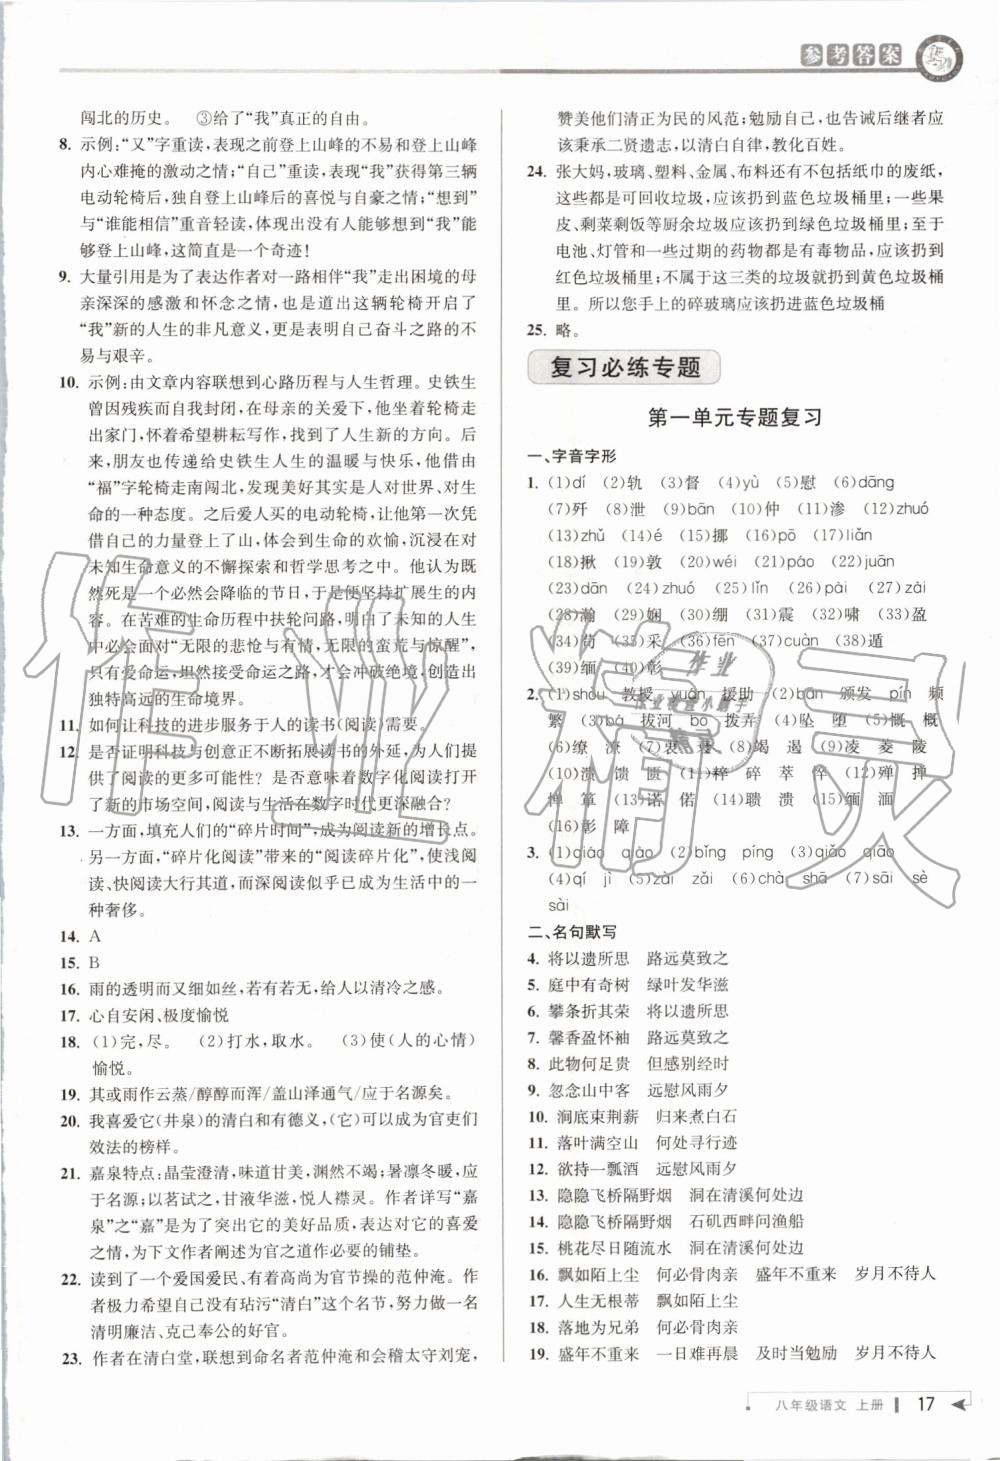 参考答案
闯北的历史。　③给了“我”真正的自由。
8. 示例:“又”字重读,表现之前登上山峰的不易和登上山峰
内心难掩的激动之情;“自己”重读,表现“我”获得第三辆
电动轮椅后,独自登上山峰后的喜悦与自豪之情;“想到”
与“谁能相信”重音轻读,体现出没有人能够想到“我”能
够登上山峰,这简直是一个奇迹!
9. 大量引用是为了表达作者对一路相伴“我”走出困境的母
亲深深的感激和怀念之情,也是道出这辆轮椅开启了
“我”新的人生的非凡意义,更是表明自己奋斗之路的不
易与艰辛。
10. 示例:由文章内容联想到心路历程与人生哲理。史铁生
曾因残疾而自我封闭,在母亲的关爱中,他坐着轮椅走
出家门,怀着希望耕耘写作,找到了人生新的方向。后
来,朋友也传递给史铁生人生的温暖与快乐,他借由
“福”字轮椅走南闯北,发现美好其实是人对世界、对生
命的一种态度。之后爱人买的电动轮椅,让他第一次凭
借自己的力量登上了山,体会到生命的欢愉,沉浸在对
未知生命意义的不懈探索和哲学思考之中。他认为既
然死是一个必然会降临的节日,于是便坚持扩展生的内
容。在苦难的生命历程中扶轮问路,明白了未知的人生
中必会面对“无限的悲怆与有情,无限的蛮荒与惊醒”,
只有爱命运,坦然接受命运之路,才能冲破绝境,创造出
独特高远的生命境界。
11. 如何让科技的进步服务于人的读书(阅读)需要。
12. 是否证明科技与创意正不断拓展读书的外延,为人们提
供了阅读的更多可能性?是否意味着数字化阅读打开
了新的市场空间,阅读与生活在数字时代更深融合?
13. 一方面,填充人们的“碎片时间”,成为阅读新的增长点。
另一方面,“碎片化阅读”带来的“阅读碎片化”,使浅阅
读、快阅读大行其道,而深阅读似乎已成为生活中的一
种奢侈。
14. A
15. B
16. 雨的透明而又细如丝,若有若无,给人以清冷之感。
17. 心自安闲、极度愉悦
18. (1)完,尽。　(2)打水,取水。　(3)使(人的心情)
愉悦。
19. 其或雨作云蒸/醇醇而浑/盖山泽通气/应于名源矣。
20. 我喜爱它(井泉)的清白和有德义,(它)可以成为官吏们
效法的榜样。
21. 嘉泉特点:晶莹澄清,味道甘美,渊然不竭;暑凛冬暖,应
于名源;以茗试之,甘液华滋,悦人襟灵。作者详写“嘉
泉”之“嘉”是为了突出它的美好品质,表达对它的喜爱
之情,为下文作者阐述为官之道作必要的铺垫。
22. 读到了一个爱国爱民、有着高尚为官节操的范仲淹。作
者极力希望自己没有玷污“清白”这个名节,努力做一名
清明廉洁、克己奉公的好官。
23. 作者在清白堂,联想到命名者范仲淹和会稽太守刘宠,
赞美他们清正为民的风范;勉励自己,也告诫后继者应
该秉承二贤遗志,以清白自律,教化百姓。
24. 张大妈,玻璃、塑料、金属、布料还有不包括纸巾的废纸,
这些都是可回收垃圾,应该扔到蓝色垃圾桶里;一些果
皮、剩菜剩饭等厨余垃圾应该扔到绿色垃圾桶里;至于
电池、灯管和一些过期的药物都是有毒物品,应该扔到
红色垃圾桶里;不属于这三类的垃圾就扔到黄色垃圾桶
里。所以您手上的碎玻璃应该扔进蓝色垃圾桶
25. 略。
复习必练专题
第一单元专题复习
一、字音字形
1. (1)dí　(2)轨　(3)督　(4)yù　(5)慰　(6)dāng
(7)歼　(8)泄　(9)bān　(10)仲　(11)渗　(12)zhuó
(13)zhǔ　(14)é　(15)挪　(16)pō　(17)liǎn
(18)揪　(19)敦　(20)wéi　(21)páo　(22)juān
(23)dān　(24)zhuó　(25)lǐn　(26)páo　(27)zài
(28)瀚　(29)娴　(30)绷　(31)震　(32)啸　(33)盈
(34)苟　(35)采　(36)fēn　(37)cuàn　(38)遁
(39)缅　(40)彰
2. (1)shòu　教授　yuán　援助　(2)bān　颁发　pín　频
繁　(3)bá　拔河　bō　拨弄　(4)坠　堕　(5)慨　概
(6)缭　潦　(7)衷　衰　(8)竭　遏　(9)凌　菱　陵
(10)溃　馈　匮　(11)粹　碎　萃　悴　(12)殚　掸
惮　箪　(13)诺　偌　(14)聩　溃　(15)缅　湎
(16)彰　障
3. (1)qiáo　qiào　(2)bǐng　píng　(3)qiǎo　qiāo
(4)qí　jì　(5)zài　zǎi　(6)chà　shā　(7)sāi　sè
sài
二、名句默写
4. 将以遗所思　路远莫致之
5. 庭中有奇树　绿叶发华滋
6. 攀条折其荣　将以遗所思
7. 馨香盈怀袖　路远莫致之
8. 此物何足贵　但感别经时
9. 忽念山中客　远慰风雨夕
10. 涧底束荆薪　归来煮白石
11. 落叶满空山　何处寻行迹
12. 欲持一瓢酒　远慰风雨夕
13. 隐隐飞桥隔野烟　洞在清溪何处边
14. 隐隐飞桥隔野烟　石矶西畔问渔船
15. 桃花尽日随流水　洞在清溪何处边
16. 飘如陌上尘　何必骨肉亲　盛年不重来　岁月不待人
17. 人生无根蒂　飘如陌上尘
18. 落地为兄弟　何必骨肉亲
19. 盛年不重来　一日难再晨　及时当勉励　岁月不待人
八年级语文 上册　17